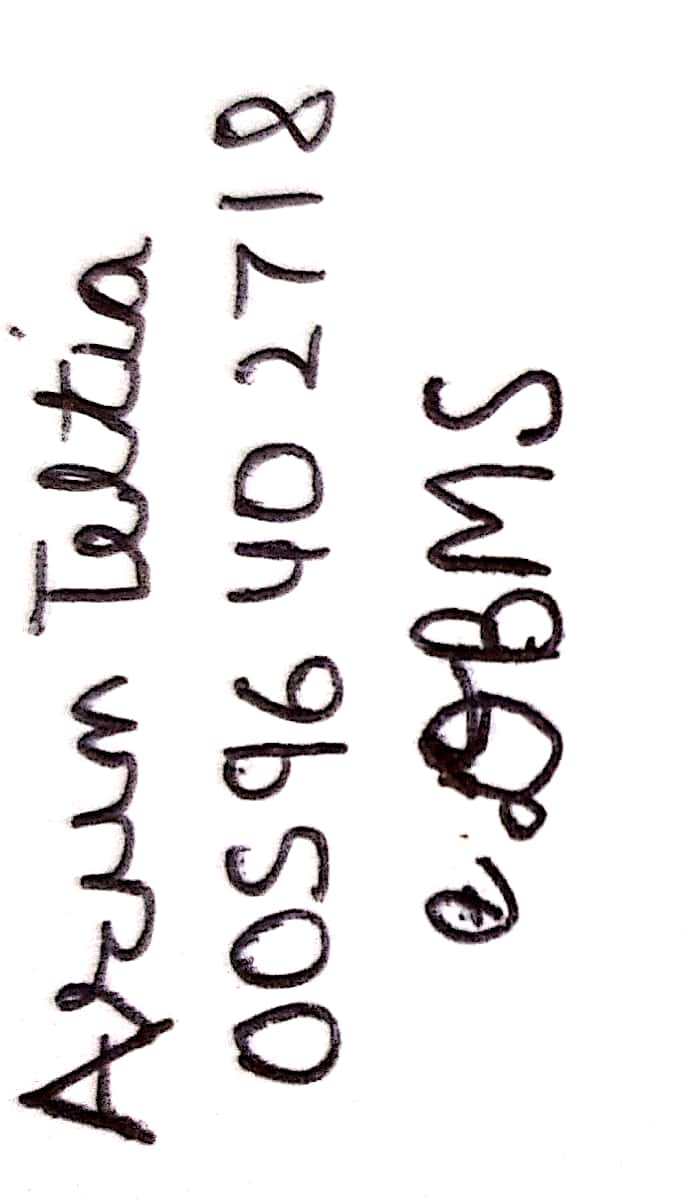 Arun Teltia
00596402718
@ DBMS